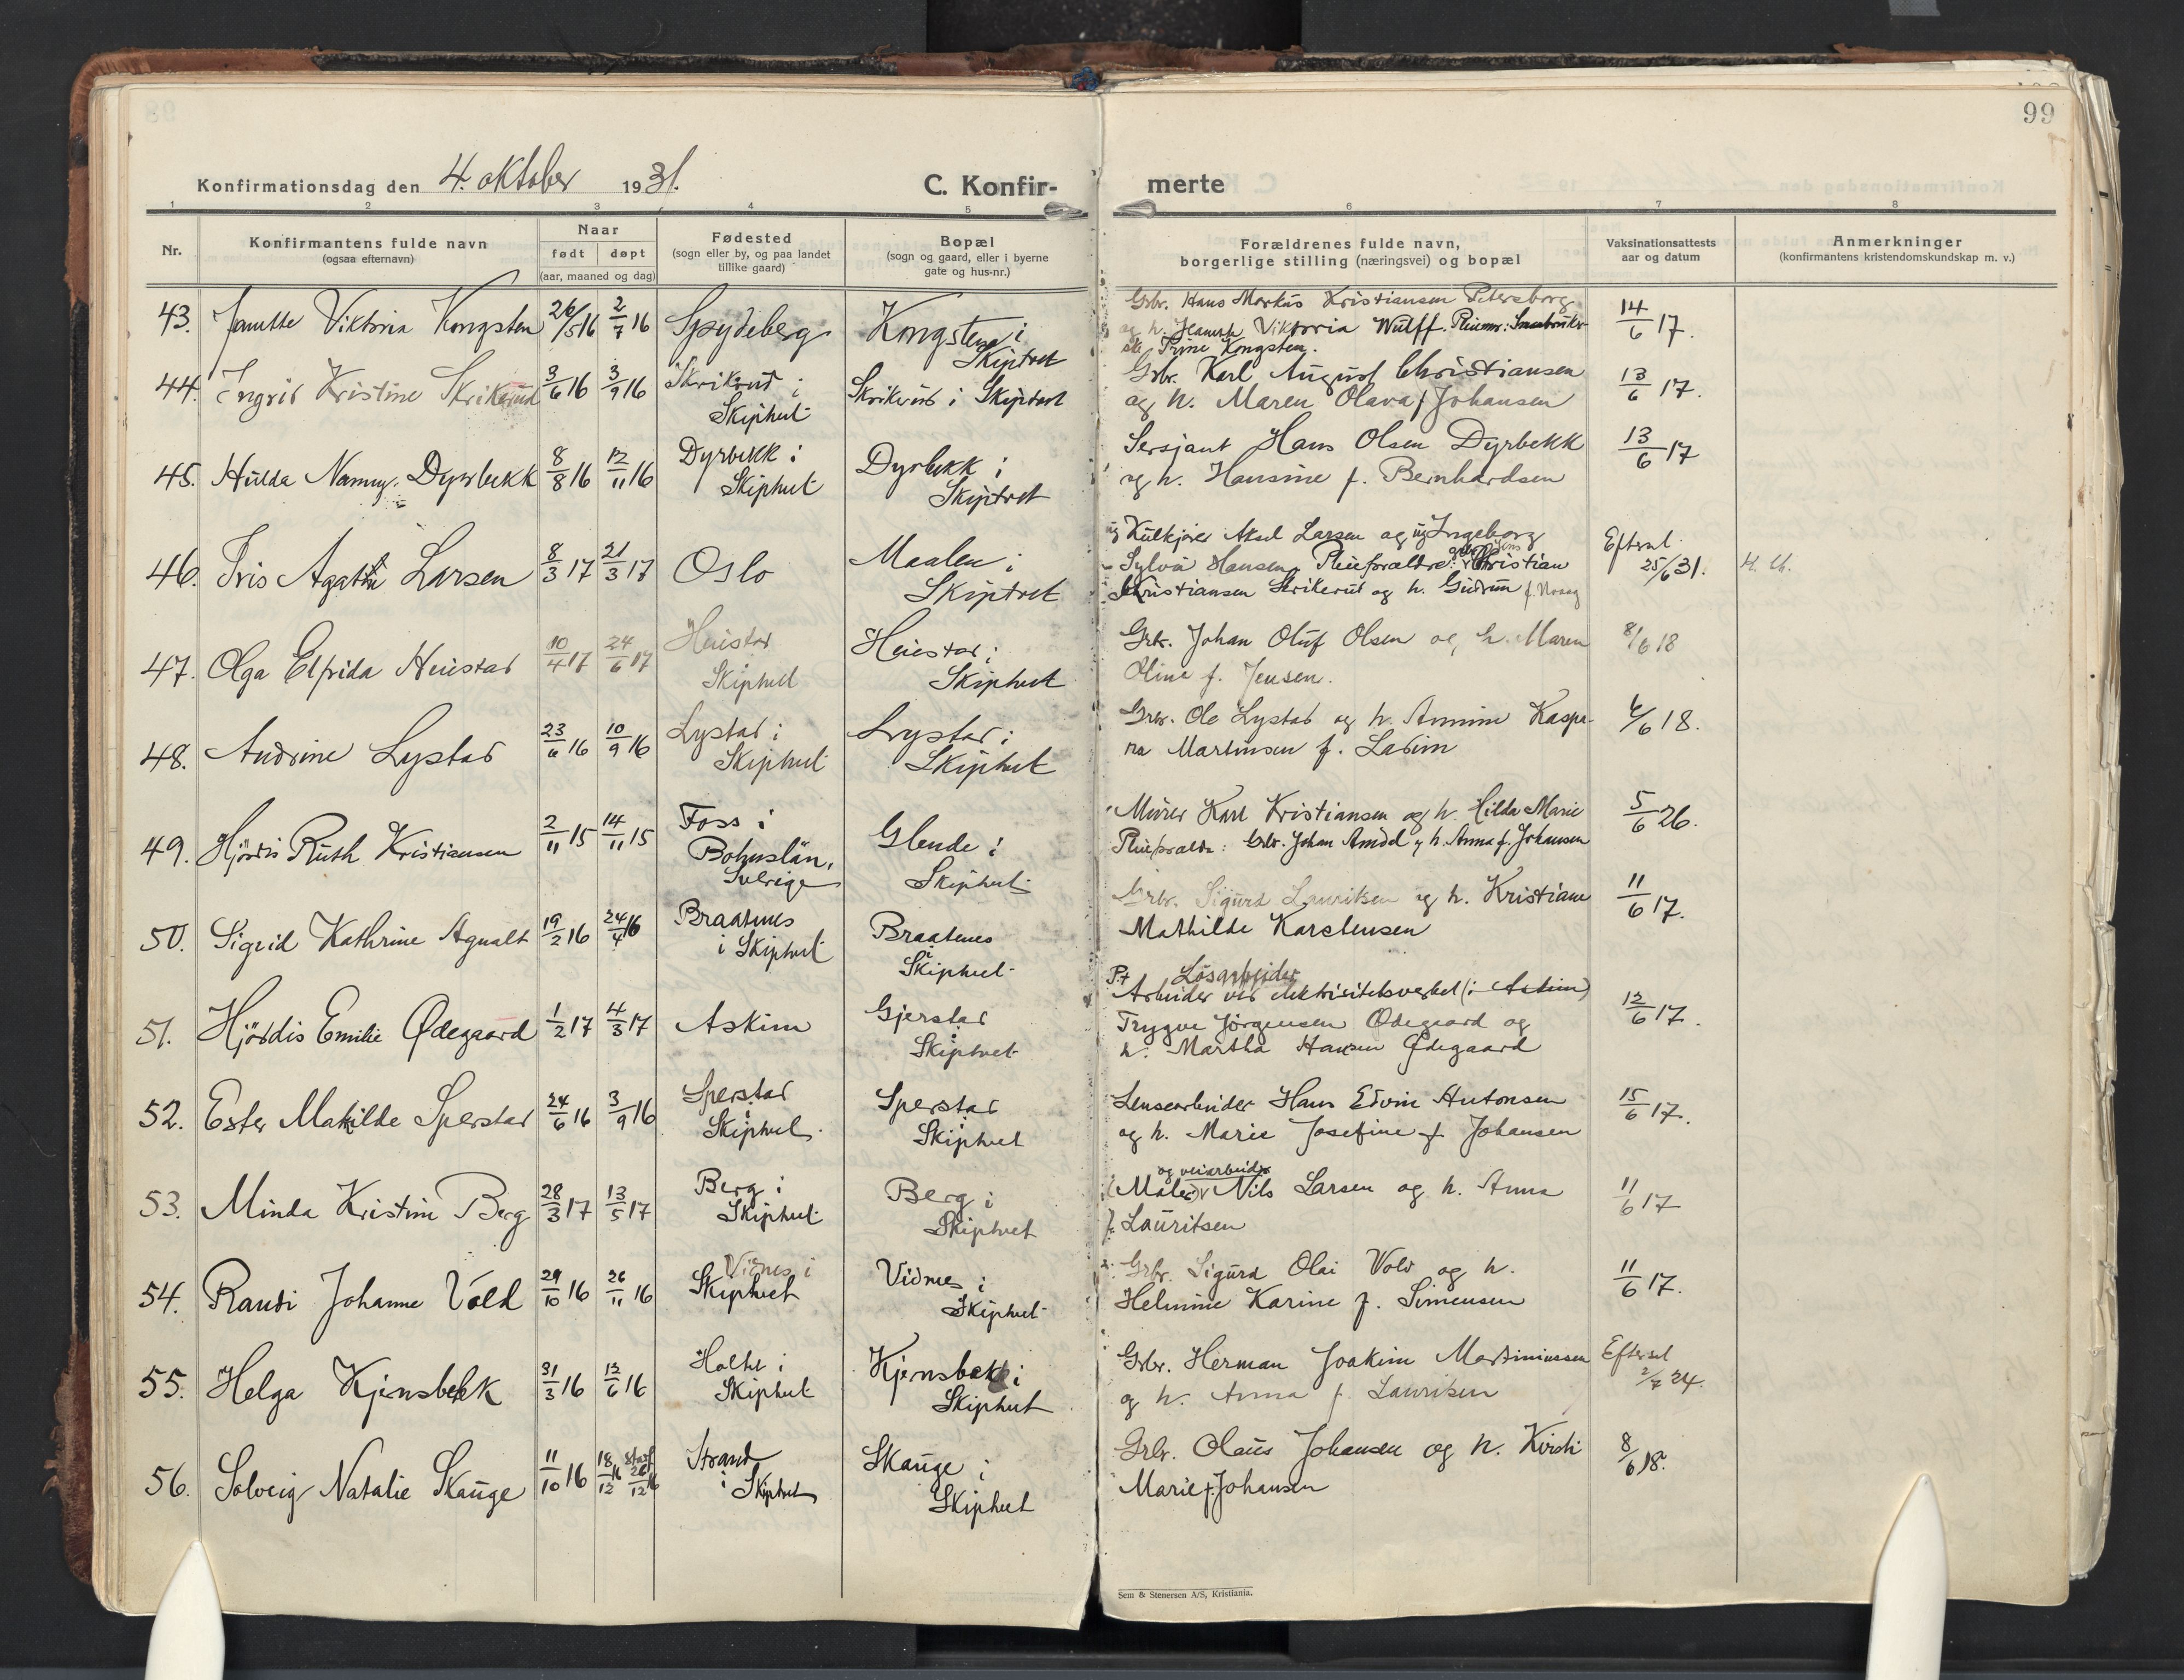 99
Konfirmationsdag den 4. oktober 1931.
C. Konfir-
merte
1 2 3 4 5 6 7 8
Nr.
Konfirmantens fulde navn
(ogsaa efternavn)
Naar
født døpt
(aar, maaned og dag)
Fødested
(sogn eller by, og paa landet
tillike gaard)
Bopæl
(sogn og gaard, eller i byerne
gate og hus-nr.)
Forældrenes fulde navn,
borgerlige stilling (næringsvei) og bopæl
Vaksinationsattests
aar og datum
Anmerkninger
(konfirmantens kristendomskundskap m. v.)
43. Viktoria Kongsten 26/5 16 2/7 16 Spydeberg Kongsten i
Skiptvet
Grbr. Hans Markus Kristiansen Petersborg
og h. Viktoria Wulff. Pleiemor: Smaabruker-
ske Trine Kongsten.
14/6 17.
44. Ingrid Kristine Skrikerud 3/6 16 3/9 16 Skrikerud i
Skiptvet
Skrikerud i Skiptvet
Grbr. Karl August Christiansen
og h. Maren Olava f. Johansen
13/6 17.
45. Hulda Nanny Dyrbekk 8/8 16 12/11 16 Dyrbekk i
Skiptvet
Dyrbekk i
Skiptvet
Sersjant Hans Olsen Dyrbekk
og h. Hansine f. Bernhardsen
13/6 17
46. Iris Agathe Larsen 8/3 17 21/3 17 Oslo Maalen i
Skiptvet
ug Kulkjører Aksel Larsen og ug Ingeborg
Sylvia Hansen. Pleieforældre: Christian
Kristiansen Skrikerud og h. Gudrun
Eftersel
25/6 31.
47. Olga Elfrida Heiestad 10/4 17 24/6 17 Heiestad
Skiptvet
Heiestad i
Skiptvet
Grbr. Johan Oluf Olsen og h. Maren
Oline f. Jensen.
8/6 18
48. Andrine Lystad 23/6 16 10/9 16 Lystad i
Skiptvet
Lystad i
Skiptvet
Grbr. Ole Lystad og h. Annine Kaspa-
ra Martinsen f. Ladim
6/6 18.
49. Hjördis Ruth Kristiansen 2/11 15 14/11 15 Foss i
Bohuslän,
Sverige
Glende i
Skiptvet
Murer Karl Kristiansen og h. Hilda Marie
Pleieforældre: Grbr. Johan Amdal og h. Anna f. Johansen
5/6 26.
50. Sigrid Kathrine Agnalt 19/2 16 24/4 16 Braatenes
i Skiptvet
Braatenes
i
Skiptvet
Grbr. Sigurd Lauritsen og h. Kristiane
Mathilde Karstensen
11/6 17.
51. Hjördis Emilie Ødegaard 1/2 17 4/3 17 Askim Gjerstad
i
Skiptvet
P.t. Løsarbeider
Arbeider ved elektrisitetsverket (i Askim)
Trygve Jörgensen Ødegaard og
h. Martha Hansen Ødegaard
12/6 17.
52. Ester Matilde Sperstad 24/6 16 3/9 16 Sperstad
i
Skiptvet
Sperstad
i
Skiptvet
Lensearbeider Hans Edvin Antonsen
og h. Marie Josefine f. Johansen
15/6 17.
53. Minda Kristine Berg 28/3 17 13/5 17 Berg i
Skiptvet
Berg i
Skiptvet
og veiarbeider
(Maler) Nils Larsen og h. Anna
f. Lauritsen
11/6 17
54. Randi Johanne Vold 29/10 16 26/11 16 Vidnes i
Skiptvet
Vidnes i
Skiptvet
Grbr. Sigurd Olai Vold og h.
Helmine Karine f. Simensen
11/6 17.
55. Helga Kjensbekk 31/3 16 12/6 16 Holtet i
Skiptvet
Kjensbekk i
Skiptvet
Grbr. Herman Joakim Martiniussen
og h. Anna f. Lauritsen
Eftersel
2/7 24.
56. Solveig Natalie Skauge 11/10 16 18/12 16 stadf. 26/12 16 Strand
i Skiptvet
Skauge i
Skiptvet
Grbr. Olaus Johansen og h. Kirsti
Marie f. Johansen
8/6 18.
Sem & Stenersen A/S, Kristiania.